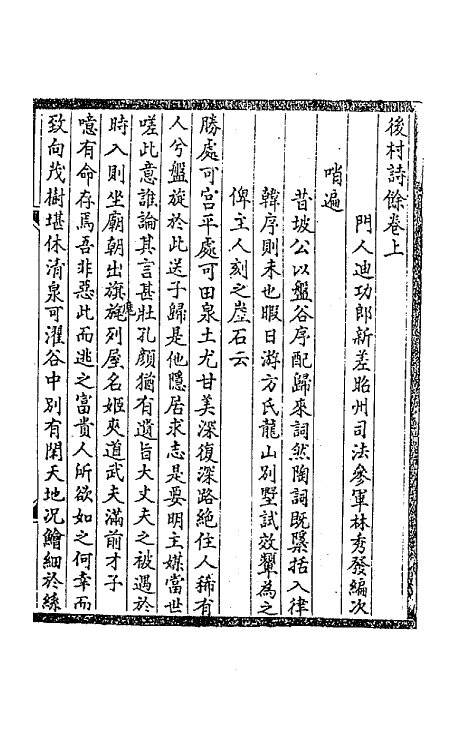 後村詩餘卷上
門人迪功郎新差昭州司法參軍林秀發編次
哨遍
昔坡公以盤谷序配歸來詞然陶詞既櫽括入律
韓序則未也暇日游方氏龍山別墅試效顰為之
俾主人刻之崖石云
勝處可宮平處可田泉土尤甘美深復深路絶住人稀有
人兮盤旋於此送子歸是他隱居求志是要明主媒當世
嗟此意誰論其言甚壯孔顏猶有遺旨大丈夫之被遇於
時入則坐廟朝出旗旄麾列屋名姬夾道武夫滿前才子
噫有命存焉吾非惡此而逃之富貴人所欲如之何幸而
致向茂樹堪休清泉可濯谷中別有閑天地况鱠細於絲